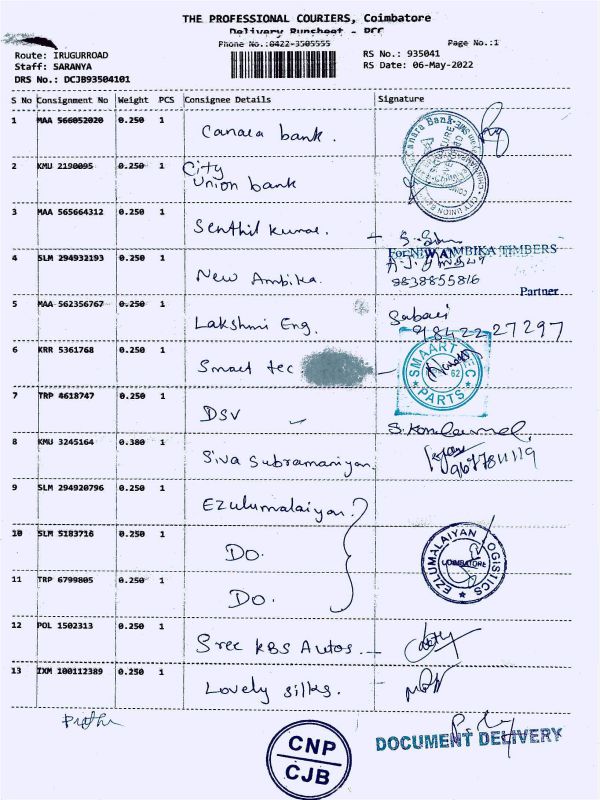 THE PROFESSIONAL COURIERS, Coimbatore
Delivery Runsheet - PCC
Phone No.:0422-3505555
Page No.:1
Route: IRUGURROAD
RS No.: 935041
Staff: SARANYA
RS Date: 06-May-2022
DRS No.: DCJB93504101
S No Consignment No Weight PCS Consignee Details Signature
1 MAA 566052020 0.250 1 Canara bank.
2 KMU 2190095 0.250 1 City Union bank
3 MAA 565664312 0.250 1 Senthil kumar.
4 SLM 294932193 0.250 1 New Ambika.
For NEW AMBIKA TIMBERS
9838855816
Partner
5 MAA 562356767 0.250 1 Lakshmi Eng.
Sabari
98422 27297
6 KRR 5361768 0.250 1 Smart tec
SMAART TEC PARTS
62
7 TRP 4618747 0.250 1 DSV
8 KMU 3245164 0.380 1 Siva Subramaniyan
9 SLM 294920796 0.250 1 Ezulumalaiyan.
10 SLM 5183716 0.250 1 Do.
EZLUMALAIYAN LOGISTICS
COIMBATORE
11 TRP 6799805 0.250 1 Do.
12 POL 1502313 0.250 1 Sree KBS Autos.
13 IXM 100112389 0.250 1 Lovely silks.
CNP
CJB
DOCUMENT DELIVERY